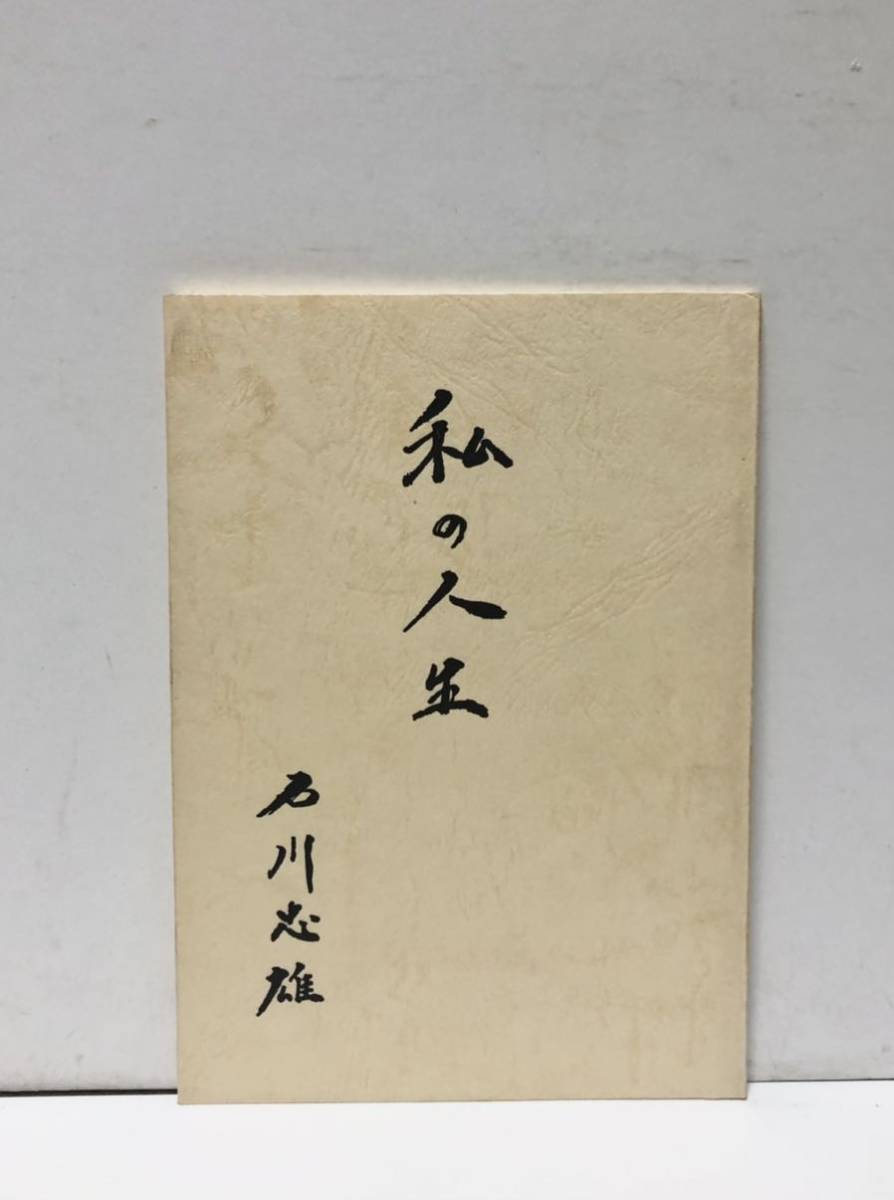 私の人生
石川忠雄